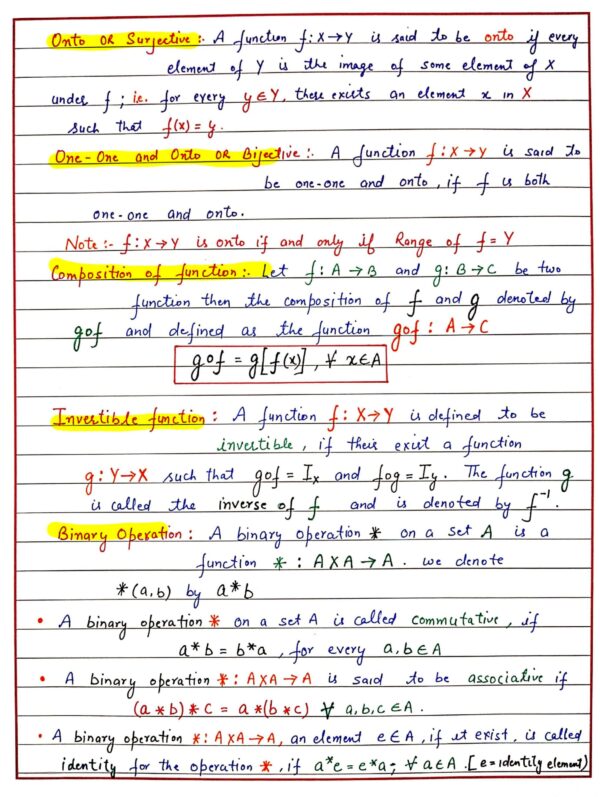 Onto OR Surjective :- A function f : X→Y is said to be onto if every
element of Y is the image of some element of X
under f ; i.e. for every y ∈ Y, there exists an element x in X
such that f(x) = y.
One-One and Onto OR Bijective :- A function f : X→Y is said to
be one-one and onto, if f is both
one-one and onto.
Note :- f : X→Y is onto if and only if Range of f = Y
Composition of function :- Let f : A → B and g : B→C be two
function then the composition of f and g denoted by
gof and defined as the function gof : A→C
gof = g[f(x)], ∀ x∈A
Invertible function : A function f : X→Y is defined to be
invertible, if their exist a function
g : Y→X such that gof = Ix and fog = Iy. The function g
is called the inverse of f and is denoted by f⁻¹.
Binary Operation : A binary operation * on a set A is a
function * : AXA → A. we denote
*(a,b) by a*b
• A binary operation * on a set A is called commutative, if
a*b = b*a, for every a,b∈A
• A binary operation * : AXA → A is said to be associative if
(a*b)*c = a*(b*c) ∀ a,b,c∈A.
• A binary operation * : AXA→A, an element e∈A, if it exist, is called
identity for the operation *, if a*e = e*a; ∀ a∈A. [e=identity element)